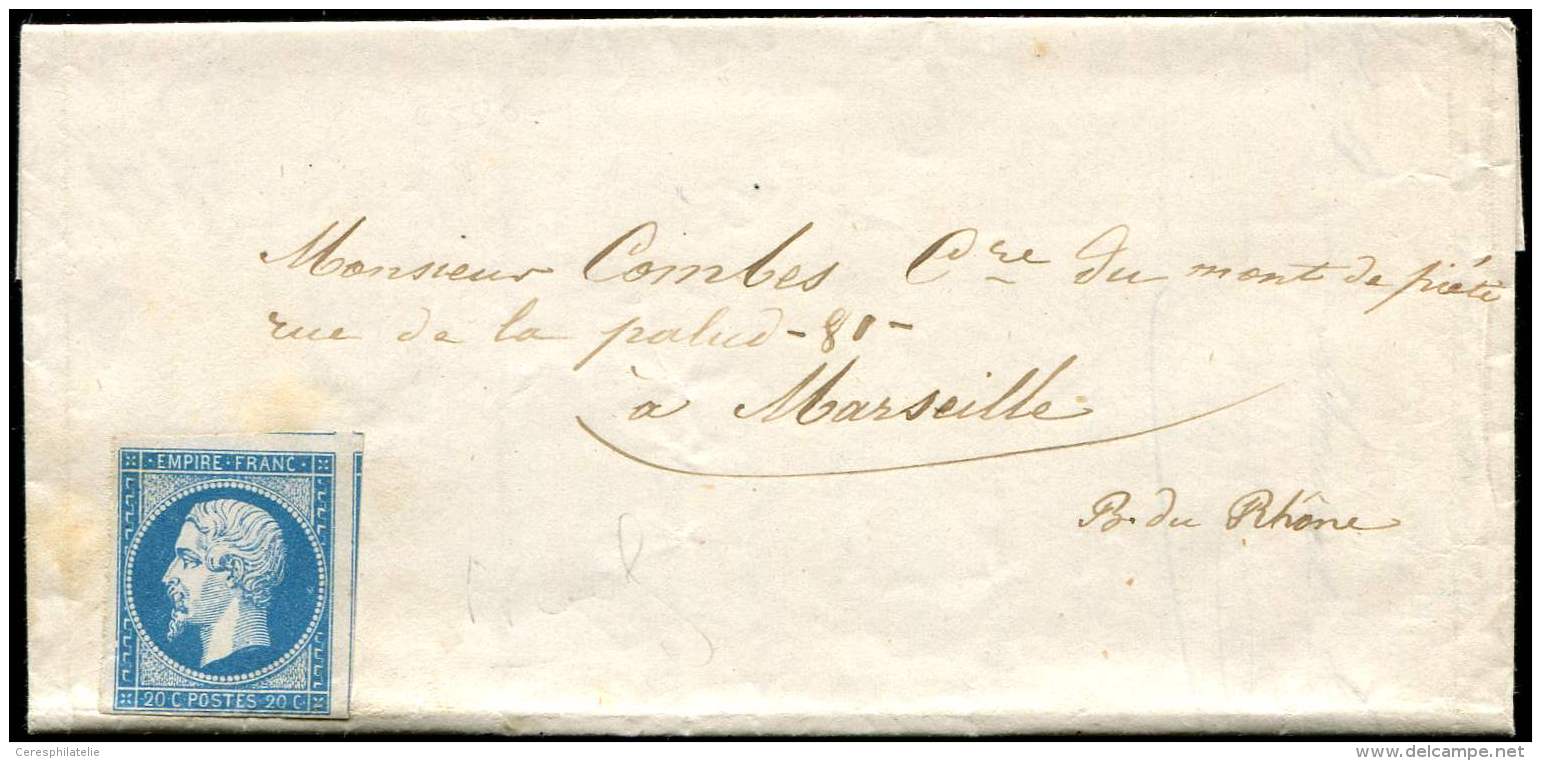 Monsieur Combes Cre du mont de piété
rue de la palud - 81 -
à Marseille
B. du Rhône
EMPIRE · FRANC ·
20 C · POSTES · 20 C ·
Ceresphilatelie
www.delcampe.net